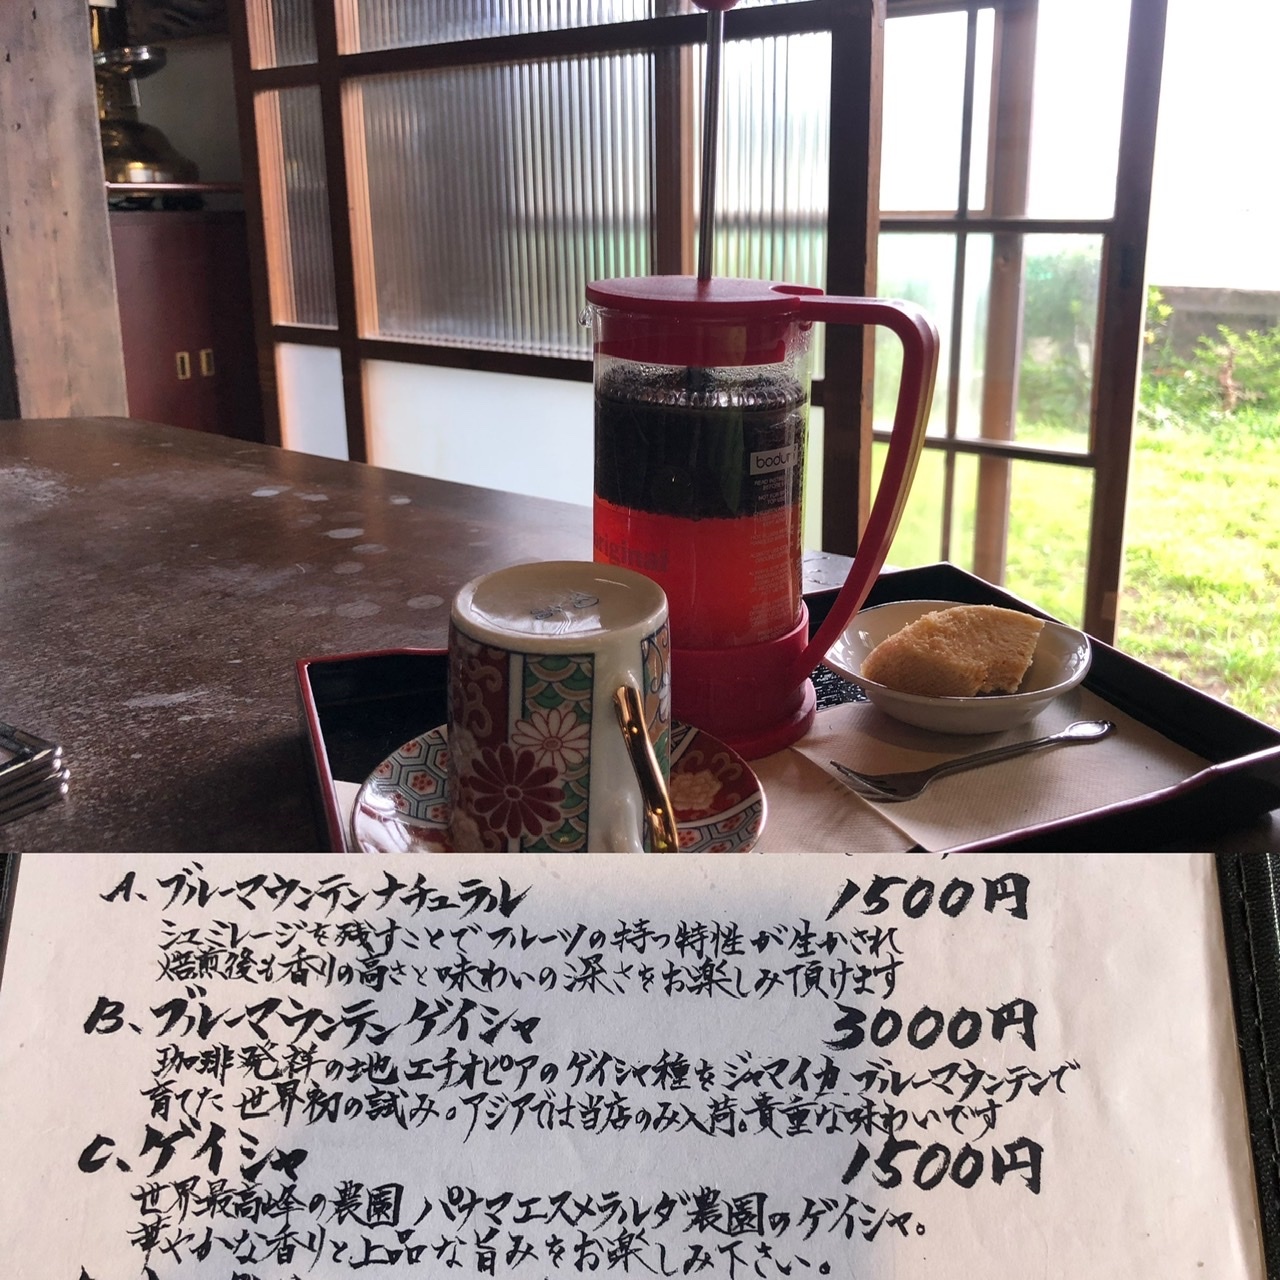 bodum
original
A、ブルーマウンテンナチュラル 1500円
シュミレージを残すことでフルーツの持つ特性が生かされ
焙煎後も香りの高さと味わいの深さをお楽しみ頂けます
B、ブルーマウンテンゲイシャ 3000円
珈琲発祥の地エチオピアのゲイシャ種をジャマイカ、ブルーマウンテンで
育てた世界初の試み。アジアでは当店のみ入荷。貴重な味わいです
C、ゲイシャ 1500円
世界最高峰の農園 パナマエスメラルダ農園のゲイシャ。
華やかな香りと上品な旨みをお楽しみ下さい。